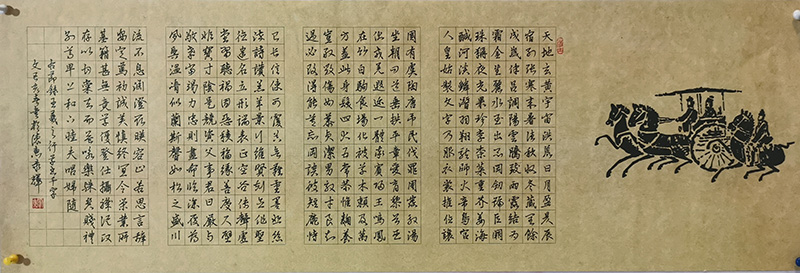 天地玄黃宇宙洪荒日月盈昃辰
宿列張寒來暑往秋收冬藏閏餘
成歲律呂調陽雲騰致雨露結為
霜金生麗水玉出崑岡劍號巨闕
珠稱夜光果珍李柰菜重芥薑海
鹹河淡鱗潛羽翔龍師火帝鳥官
人皇始制文字乃服衣裳推位讓
國有虞陶唐弔民伐罪周發殷湯
坐朝問道垂拱平章愛育黎首臣
伏戎羌遐邇壹體率賓歸王鳴鳳
在竹白駒食場化被草木賴及萬
方蓋此身髮四大五常恭惟鞠養
豈敢毀傷女慕貞潔男效才良知
過必改得能莫忘罔談彼短靡恃
己長信使可覆器欲難量墨悲絲
染詩讚羔羊景行維賢剋念作聖
德建名立形端表正空谷傳聲虛
堂習聽禍因惡積福緣善慶尺璧
非寶寸陰是競資父事君曰嚴與
敬孝當竭力忠則盡命臨深履薄
夙興溫凊似蘭斯馨如松之盛川
流不息淵澄取映容止若思言辭
安定篤初誠美慎終宜令榮業所
基籍甚無竟學優登仕攝職從政
存以甘棠去而益詠樂殊貴賤禮
別尊卑上和下睦夫唱婦隨
右節錄王羲之行草千字
文己亥春書於